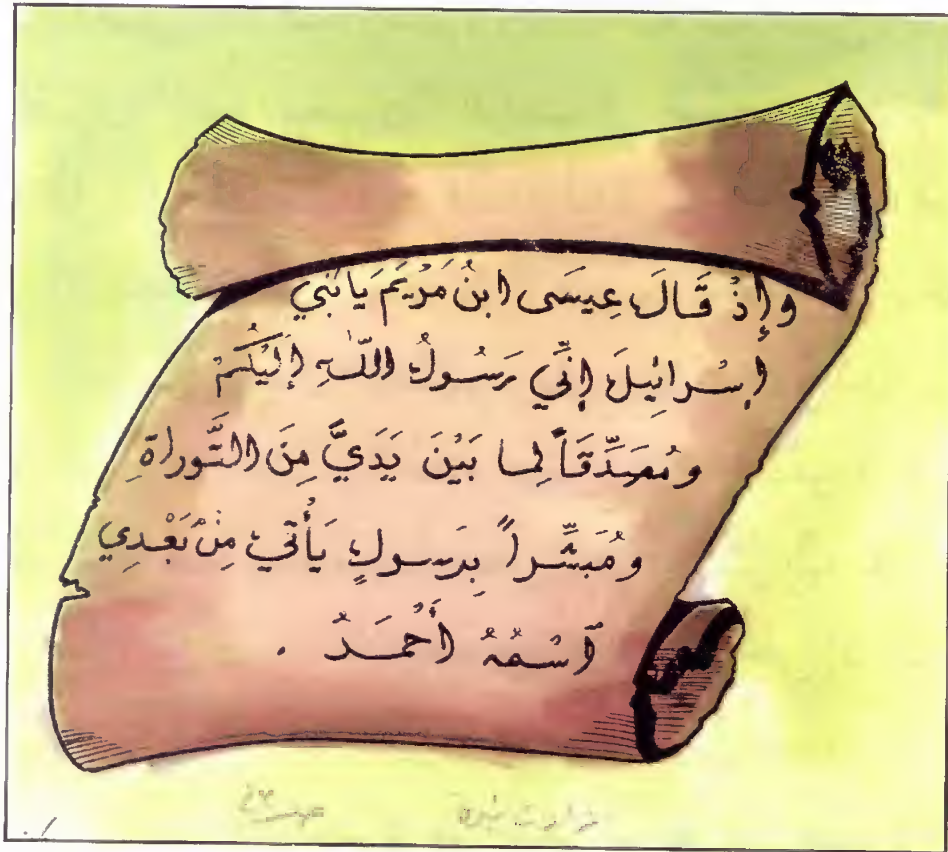 وإِذْ قَالَ عِيسَى ابنُ مَرْيَمَ يَابَنِي
إسْرائِيلَ إنِّي رَسُولُ اللّهِ إلَيْكُمْ
ومُصَدِّقَاً لِما بَيْنَ يَدَيَّ مِنَ التَّوراةِ
ومُبَشِّراً بِرَسولٍ يَأْتي مِنْ بَعْدِي
اسْمُهُ أَحْمَدُ .